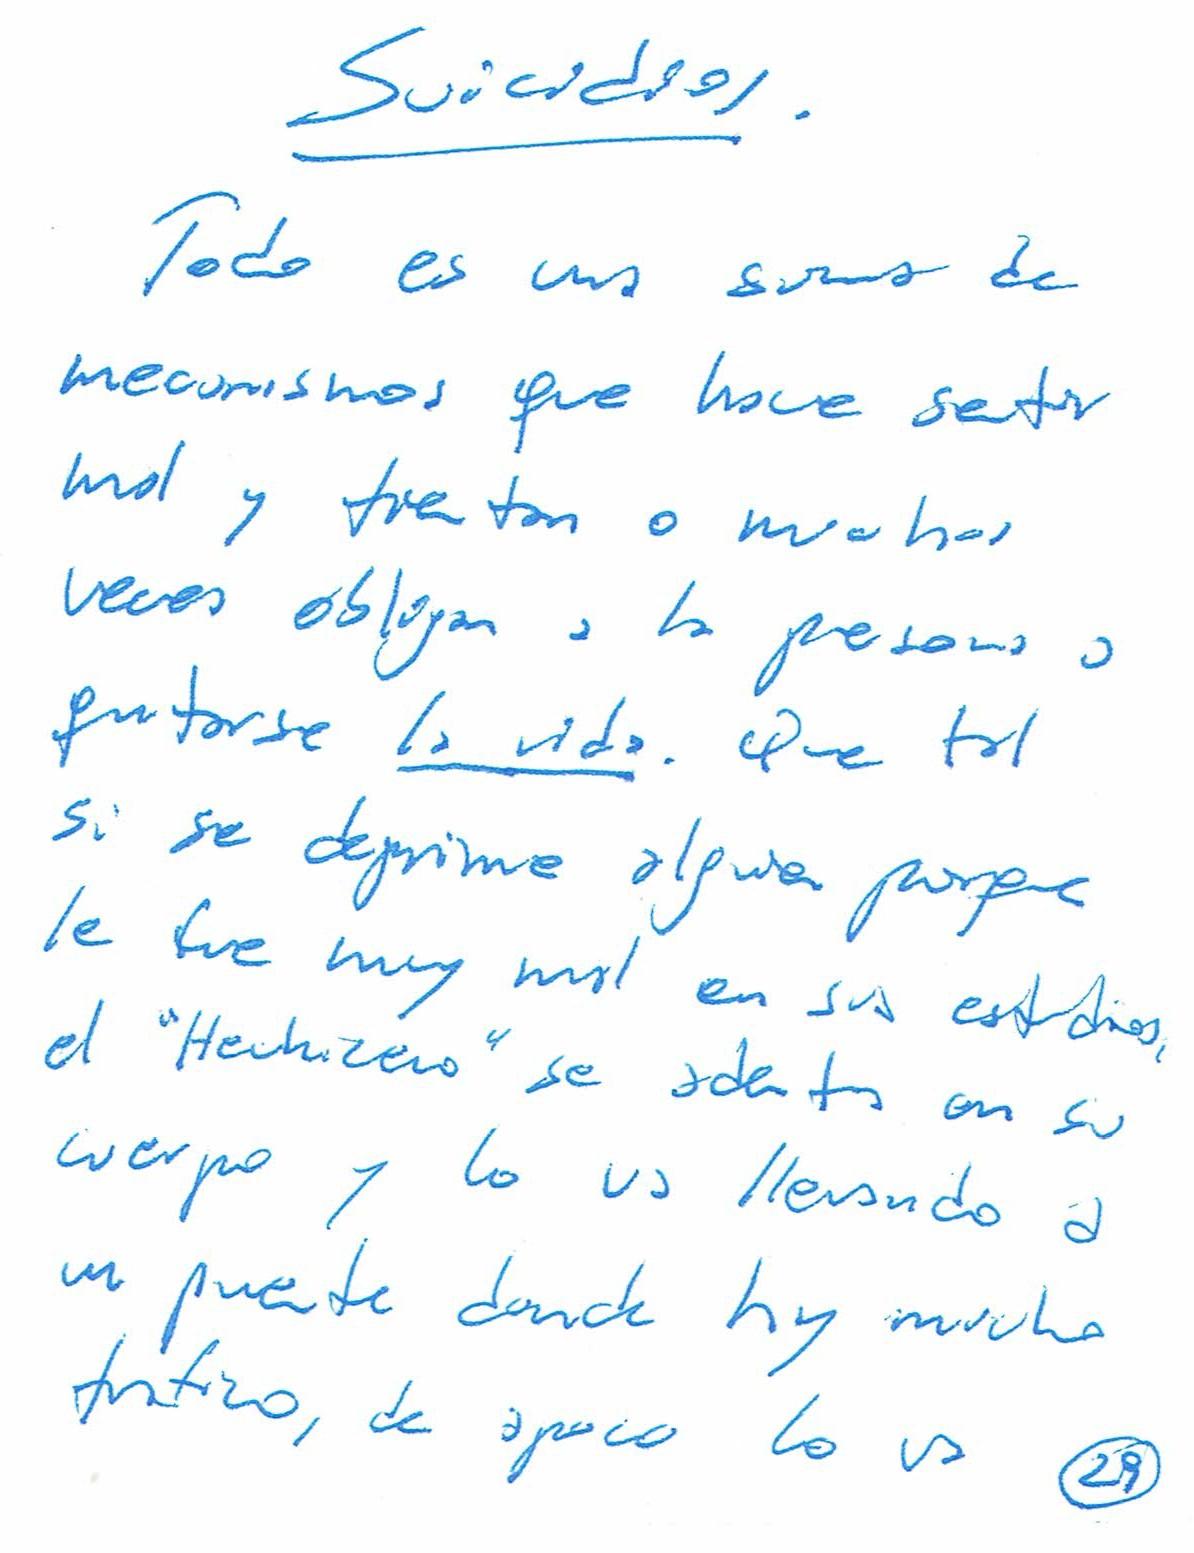 Suicidios.
Todo es una suma de
mecanismos que hace sentir
mal y tientan o muchas
veces obligan a la persona a
quitarse la vida. Que tal
si se deprime alguien porque
le fue muy mal en sus estudios,
el "Hechizero" se adentra en su
cuerpo y lo va llevando a
un puente donde hay mucho
trafico, de apoco lo va
29